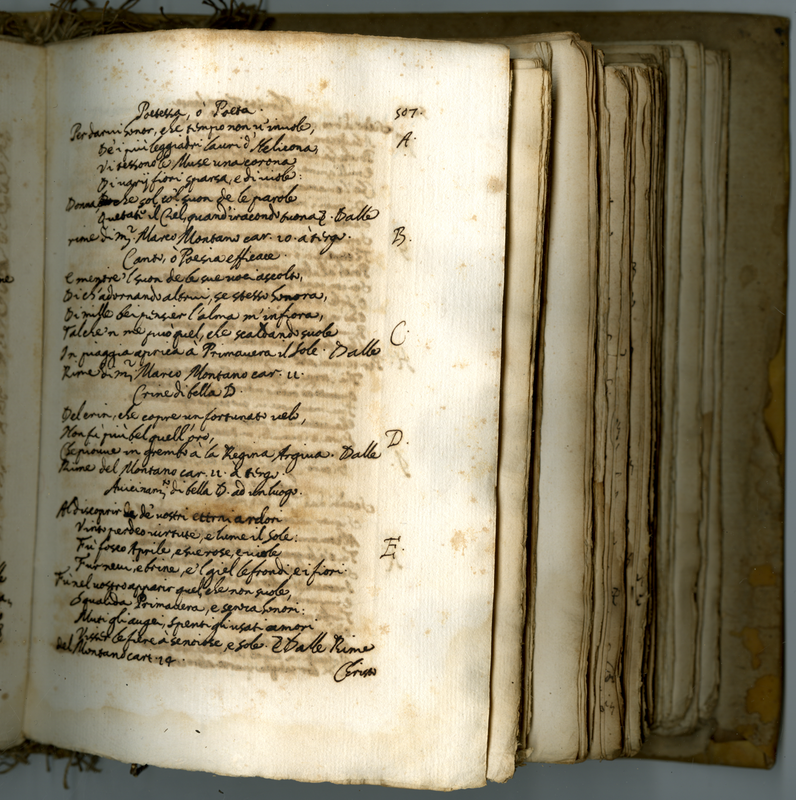 Poetessa, ò Poeta.
507.
Per darui honor, che tempo non u'inuole,
A.
De i più leggiadri lauri d'Helicona,
Vi tessono le Muse una corona
Di uarij fiori sparsa, e di uiole:
Donna, che sol col suon de le parole
Quetate il Ciel, quand'iracondo tuona. Dalle
rime di m. Marco Montano car. 10. à tergo.
B.
Canto, ò Poesia efficace.
E mentre 'l suon de le sue uoci ascolto,
Di ch'adornando altrui, se stesso honora,
Di mille bei pensier l'alma m'infiora,
Talche 'n me può quel, che scaldando suole
C.
In piaggia aprica à Primauera il Sole. Dalle
Rime di m. Marco Montano car. 11.
Crine di bella D.
Del crin, che copre un fortunato uelo,
Non fù più bel quell'oro,
D.
Che piouue in grembo à la Regina Argiua. Dalle
Rime del Montano car. 11. à tergo.
Auicinam.to di bella D. ad un luogo.
Al discoprir de' uostri eterni ardori
Vinto perdeo uirtute, e lume il sole:
Fù fosco Aprile, e sue rose, e uiole
E.
Fur neui, e brine, e 'l giel le frondi, e i fiori.
Fù nel uostro apparir quel, che non suole,
Squalida Primauera, e senza honori:
Muti gli augei, spenti gli usati amori
Visser le fiere à se noiose, e sole. Dalle Rime
del Montano cart. 14.
Christo